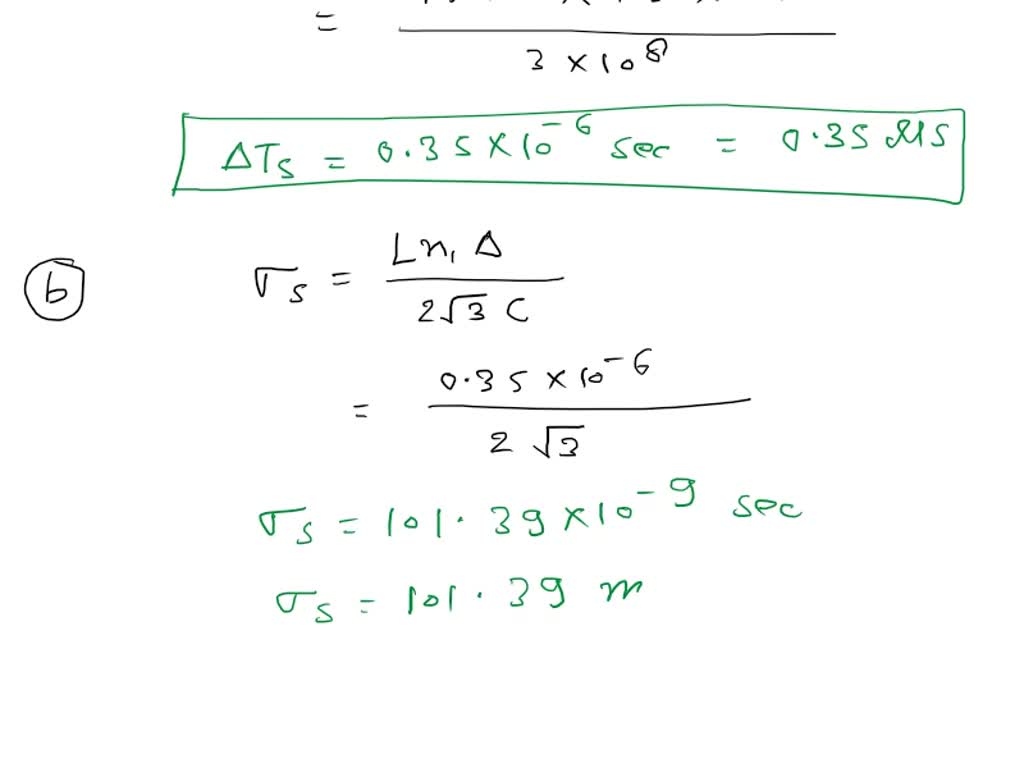 =
3 × 10⁸
ΔTs = 0.35 × 10⁻⁶ sec = 0.35 μs
(b) σs = Ln₁ Δ / 2√3 C
= 0.35 × 10⁻⁶ / 2√3
σs = 101.39 × 10⁻⁹ sec
σs = 101.39 n